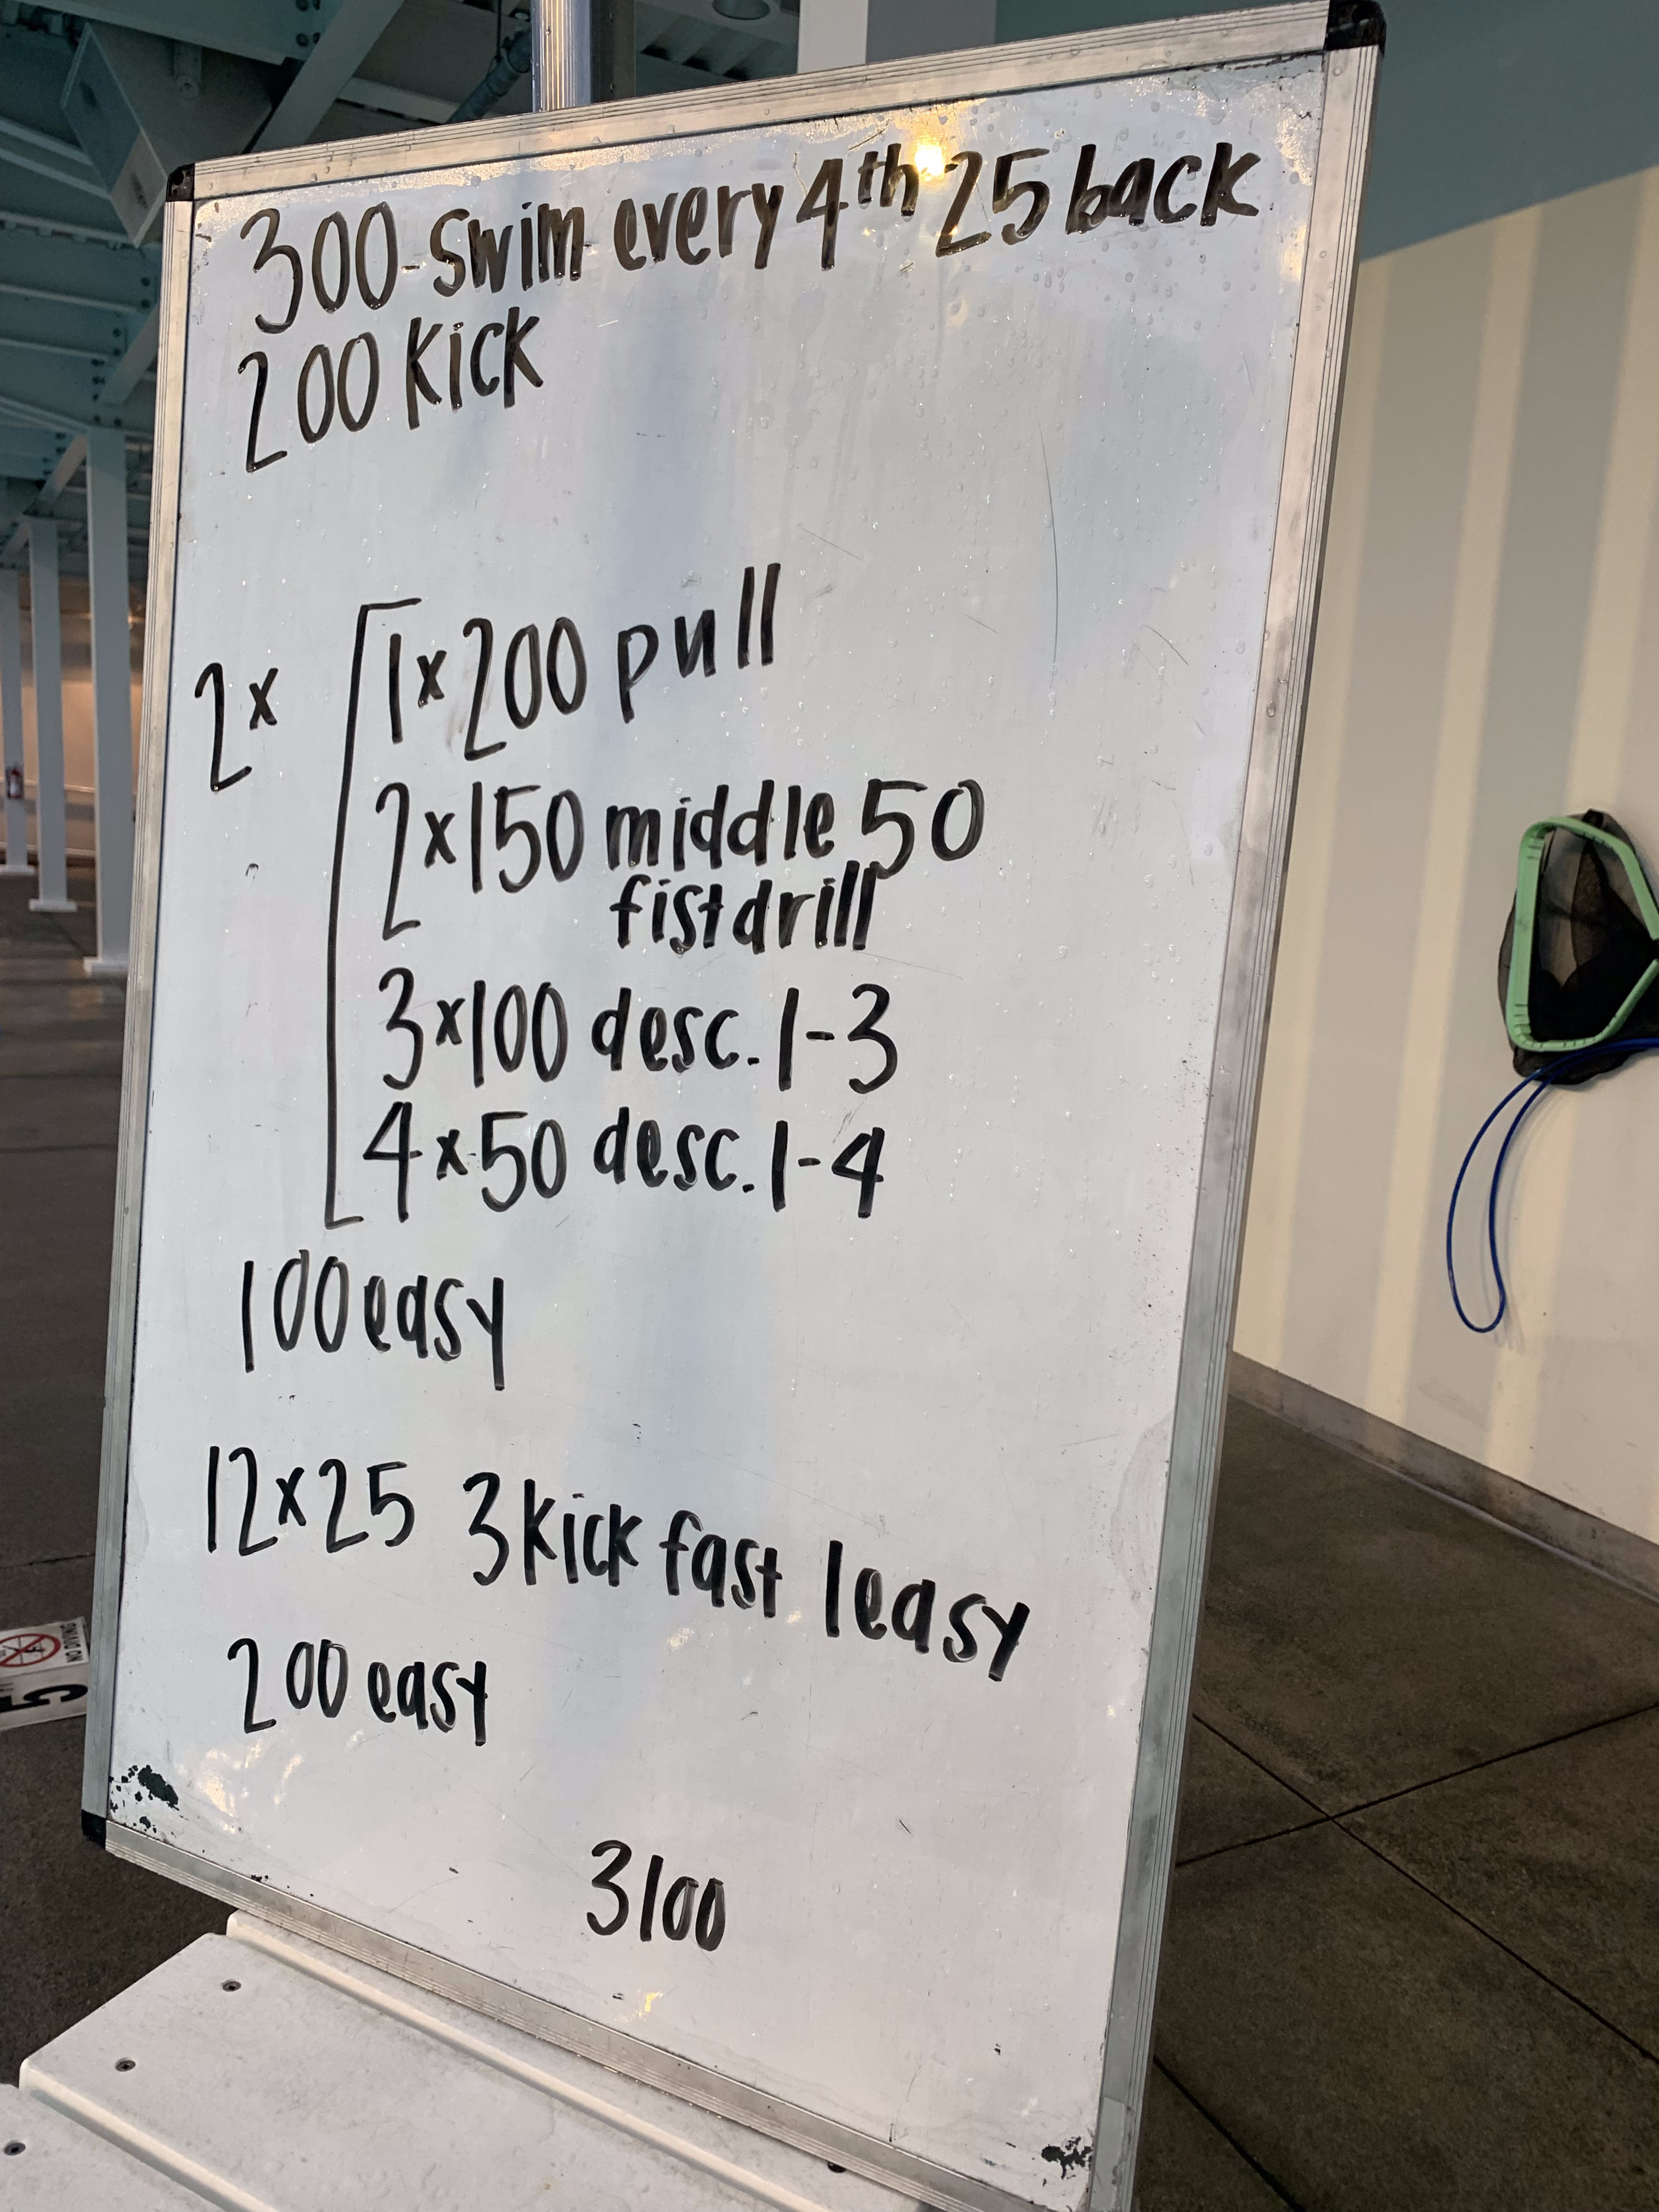 300-swim every 4th 25 back
200 kick
2x
1x200 pull
2x150 middle 50
fist drill
3x100 desc. 1-3
4x50 desc. 1-4
100 easy
12x25 3 kick fast 1 easy
200 easy
3100
NO DIVING
5